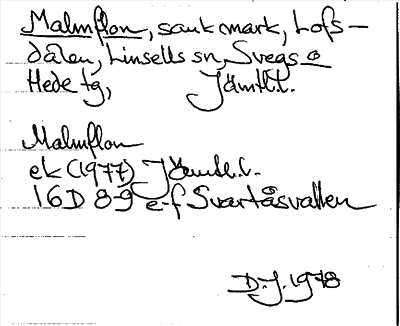 Malmflon, sank mark, Lofs-
dalen, Linsells sn, Svegs o
Hede tg, Jämtl.l.
Malmflon
ek (1977) Jämtl.l.
16D 8-9 e-f Svartåsvallen
D.J. 1978